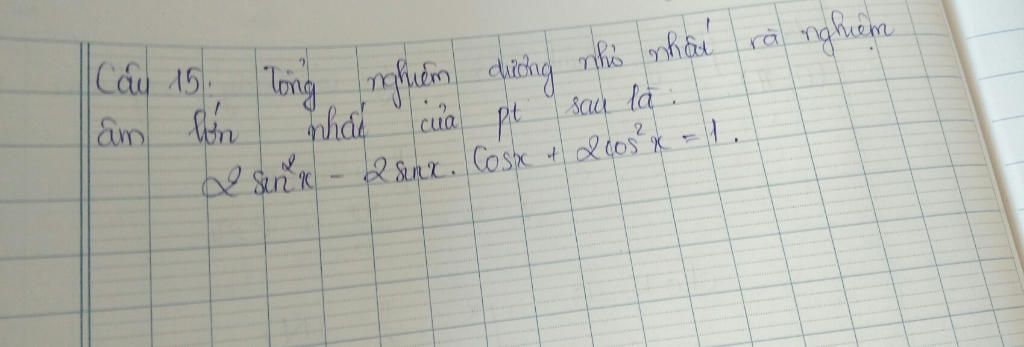 Câu 15: Tổng nghiệm dương nhỏ nhất và nghiệm
âm lớn nhất của pt sau là:
2 sin²x - 2 sinx. Cosx + 2cos²x = 1.